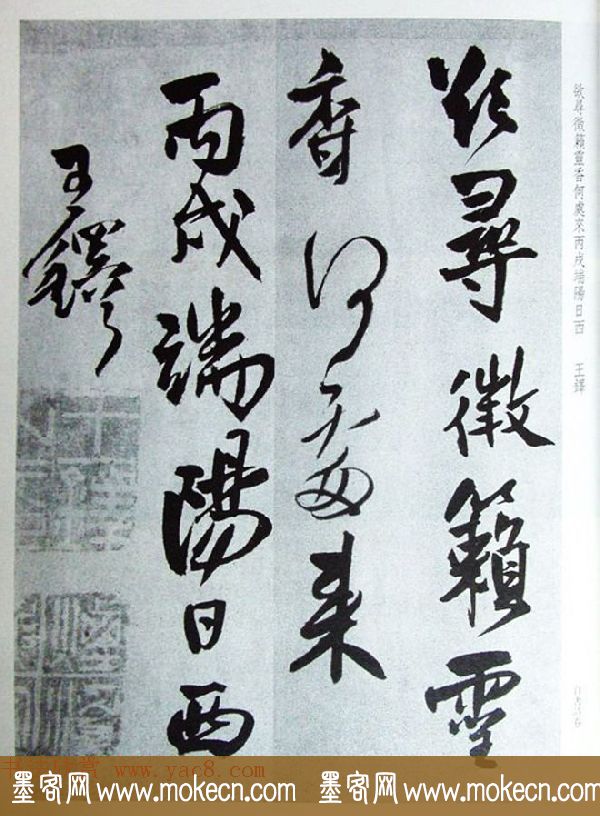 欲尋微籟靈香何處來丙戌端陽日西 王鐸
自書詩卷
欲尋微籟靈
香何處來
丙戌端陽日西
王鐸
书法欣赏 www.yac8.com
墨客网 www.mokecn.com 墨客网 www.mokecn.com